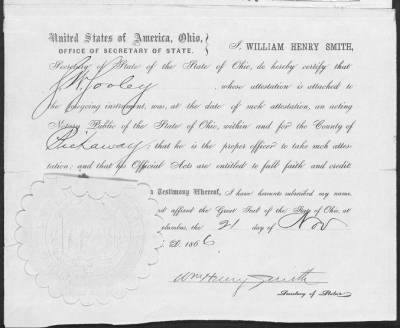 United States of America, Ohio,
OFFICE OF SECRETARY OF STATE.
I, WILLIAM HENRY SMITH,
Secretary of State of the State of Ohio, do hereby certify that
whose attestation is attached to
the foregoing instrument, was, at the date of such attestation, an acting
Notary Public of the State of Ohio, within and for the County of
Pickaway; that he is the proper officer to take such attes-
tation; and that his Official Acts are entitled to full faith and credit
n Testimony Whereof, I have hereunto subscribed my name,
nd affixed the Great Seal of the State of Ohio, at
olumbus, the 21 day of Nov
D. 1866
Wm Henry Smith
Secretary of State.